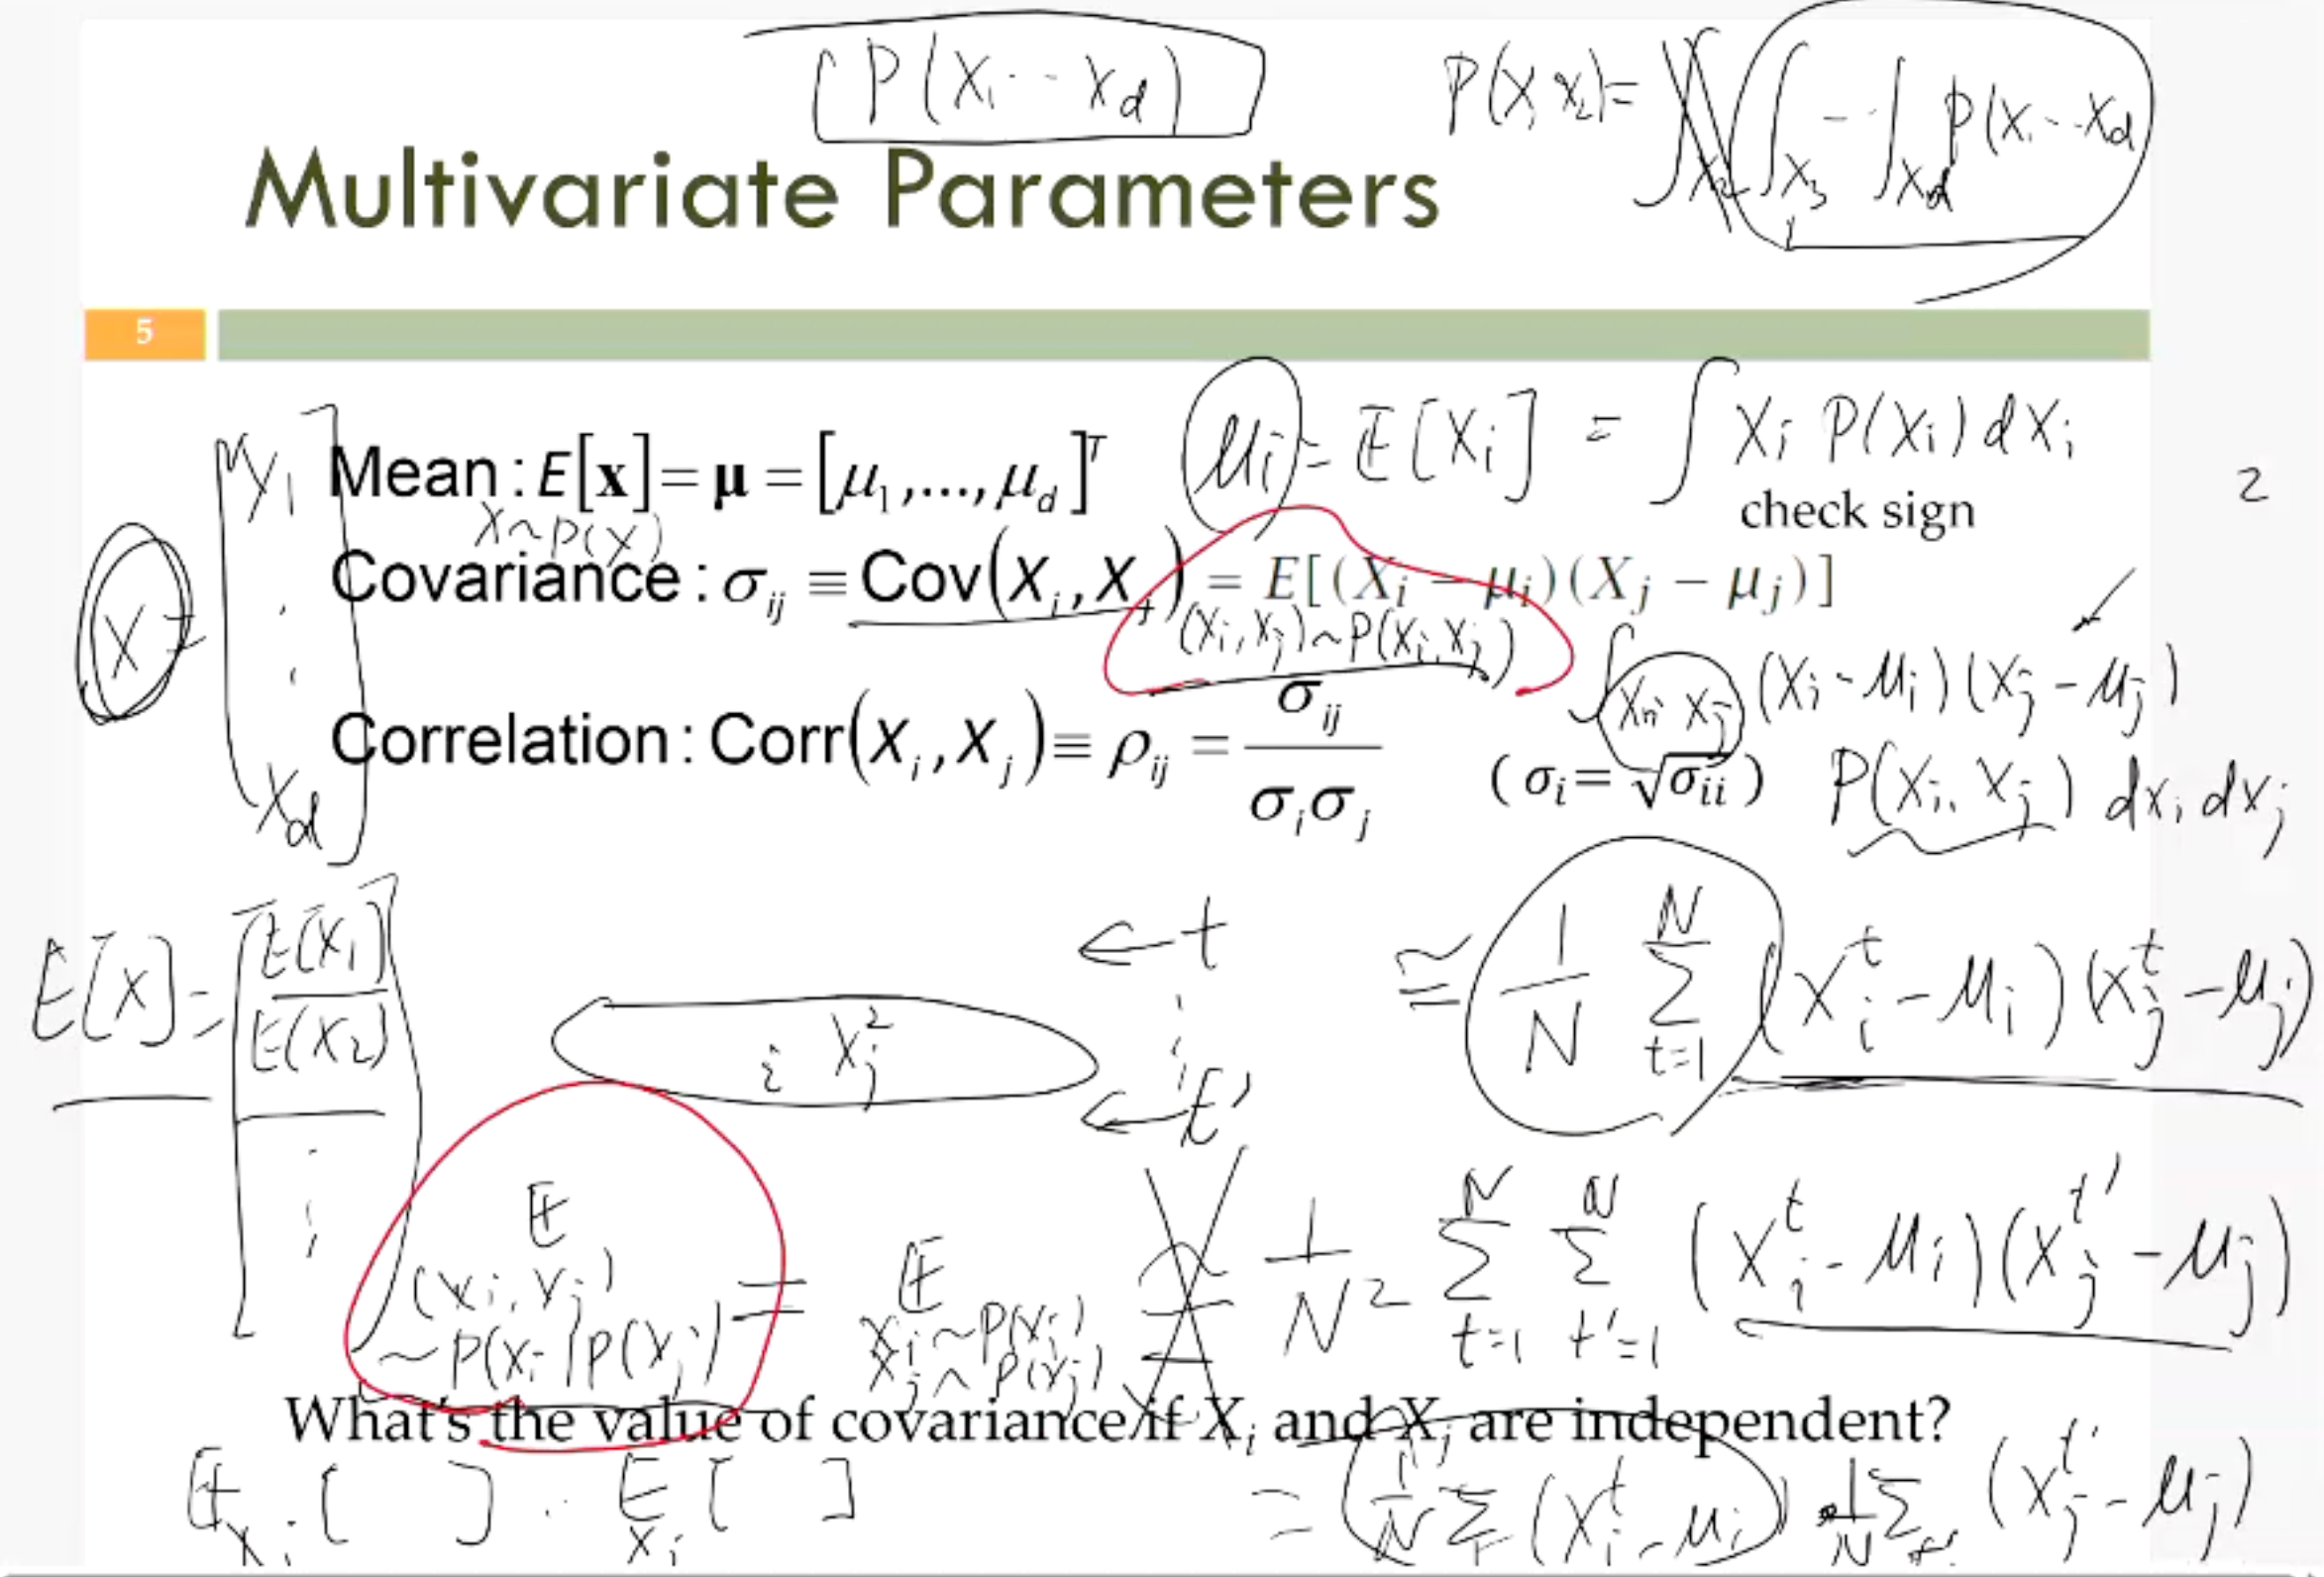 P(Xi -- Xd)
P(X, X2) = ∫X2 ∫X3 -- ∫Xd P(Xi -- Xd
Multivariate Parameters
5
μi = E[Xi] = ∫ Xi P(Xi) dXi
Mean : E[x] = μ = [μ1,...,μd]^T
check sign
2
X ~ P(X)
Covariance : σij ≡ Cov(Xi, Xj) = E[(Xi − μi)(Xj − μj)]
(Xi, Xj) ~ P(Xi, Xj)
X =
X1
Xd
∫Xi Xj (Xi - μi)(Xj - μj)
Correlation : Corr(Xi, Xj) ≡ ρij = σij / σiσj
(σi = √σii)
P(Xi, Xj) dxi dxj
E[X] = [E(X1) E(X2)
← t
← t'
i Xj^2
≅ 1/N Σ t=1 N (Xi^t - μi)(Xj^t - μj)
E (Xi, Xj) ~ P(Xi)P(Xj) = E Xi ~ P(Xi) Xj ~ P(Xj)
1/N^2 Σ t=1 N Σ t'=1 N (Xi^t - μi)(Xj^t' - μj)
What's the value of covariance if Xi and Xj are independent?
E Xi [ ] · E Xj [ ]
= (1/N Σ t (Xi^t - μi)) 1/N Σ t' (Xj^t' - μj)